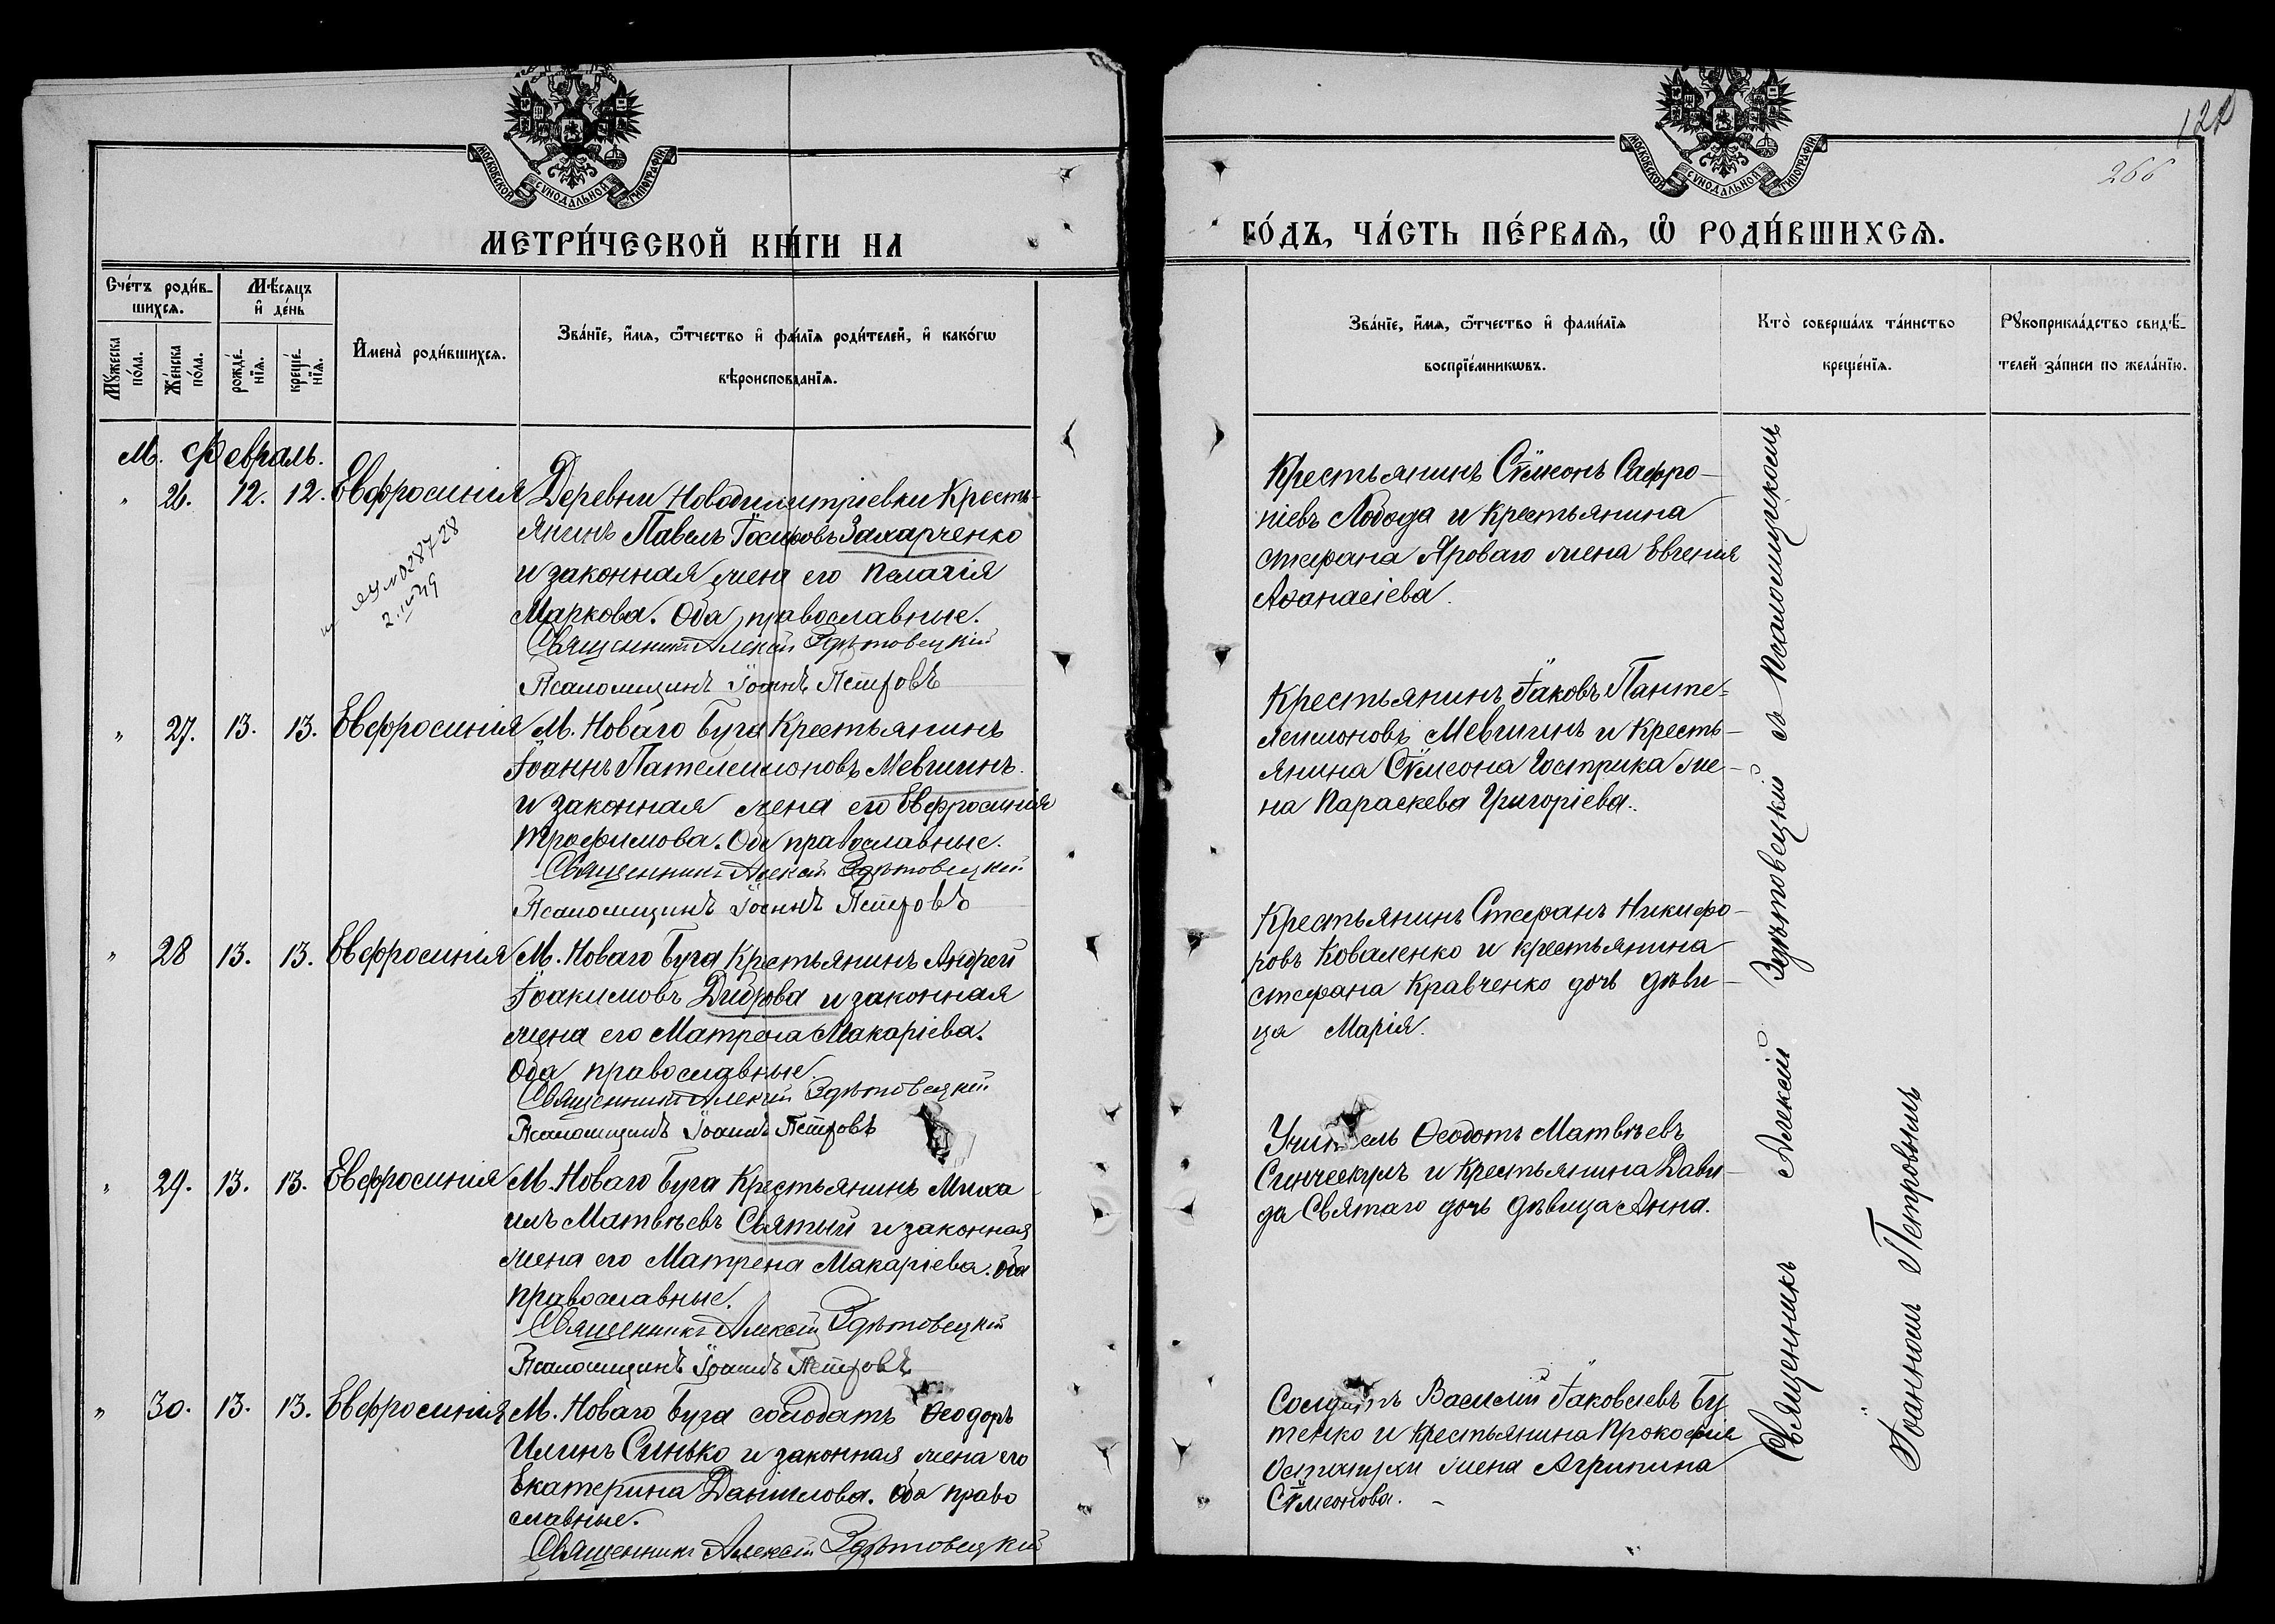 МОСКОВСКОЙ СѴНОДАЛЬНОЙ ТИПОГРАФІИ
МЕТРИ́ЧЕСКОЙ КНИ́ГИ НА
Сче́тъ роди́в-
шихся.
Мѣ́сяцъ
и҆ де́нь
Мꙋ́жеска
по́ла.
Же́нска
по́ла.
рожде́-
нїѧ.
креще́-
нїѧ.
И҆мена̀ роди́вшихсѧ.
Зва́нїе, и҆́мѧ, ѻ҆́тчество и҆ фамі́лїѧ роди́телей, и҆ како́гѡ
вѣроисповѣ́данїѧ.
М. Февраль.
" 26. 12. 12. Евфросинія
Деревни Новодимитріевки Кресть-
янинъ Павелъ Іосифовъ Захарченко
и законная жена его Пелагія
Маркова. Оба православные.
Священникъ Алексій Здѣтовецкій
Псаломщикъ Іоаннъ Петровъ
028728
" 27. 13. 13. Евфросинія
М. Новаго Буга Крестьянинъ
Іоаннъ Пателеимоновъ Мевшинъ
и законная жена его Евфросинія
Трофимова. Оба православные.
Священникъ Алексій Здѣтовецкій
Псаломщикъ Іоаннъ Петровъ
" 28 13. 13. Евфросинія
М. Новаго Буга Крестьянинъ Андрей
Іоакимовъ Диброва и законная
жена его Матрона Макаріева.
Оба православные.
Священникъ Алексій Здѣтовецкій
Псаломщикъ Іоаннъ Петровъ
" 29. 13. 13. Евфросинія
М. Новаго Буга Крестьянинъ Миха
илъ Матвѣевъ Святый и законная
жена его Матрена Макаріева. Оба
православные.
Священникъ Алексій Здѣтовецкій
Псаломщикъ Іоаннъ Петровъ
" 30. 13. 13. Евфросинія
М. Новаго Буга солодатъ Ѳеодоръ
Илинъ Синько и законная жена его
Екатерина Даніилова. Оба право
славные.
Священникъ Алексій Здѣтовецкій
МОСКОВСКОЙ СѴНОДАЛЬНОЙ ТИПОГРАФІИ
122
266
ГО́ДЪ, ЧА́СТЬ ПЕ́РВАЯ, Ѽ РОДИ́ВШИХСЯ.
Зва́нїе, и҆́мѧ, ѻ҆́тчество и҆ фами́лїѧ
воспрїе́мникѡвъ.
Кто̀ соверша́лъ та́инство
креще́нїѧ.
Рꙋкоприкла́дство свидѣ́-
телей за́писи по жела́нїю.
Крестьянинъ Сѷмеонъ Сафро-
ніевъ Лобода и крестьянина
Стефана Яроваго жена Евгенія
Аѳанасіева.
Крестьянинъ Іаковъ Панте-
леимоновъ Мевшинъ и Кресть-
янина Сѷмеона Гострика же-
на Параскева Григоріева.
Крестьянинъ Стефанъ Никифо-
ровъ Коваленко и крестьянина
Стефана Кравченко дочь дѣви-
ца Марія.
Учитель Ѳеодотъ Матвѣевъ
и Крестьянина Дави-
да Святаго дочь дѣвица Анна.
Солдатъ Василій Іаковлевъ Бу
тенко и крестьянина Прокофія
жена Агрипина
Сѷмеонова.
Священникъ Алексій Здѣтовецкій съ Псаломщикомъ
Іоанномъ Петровымъ